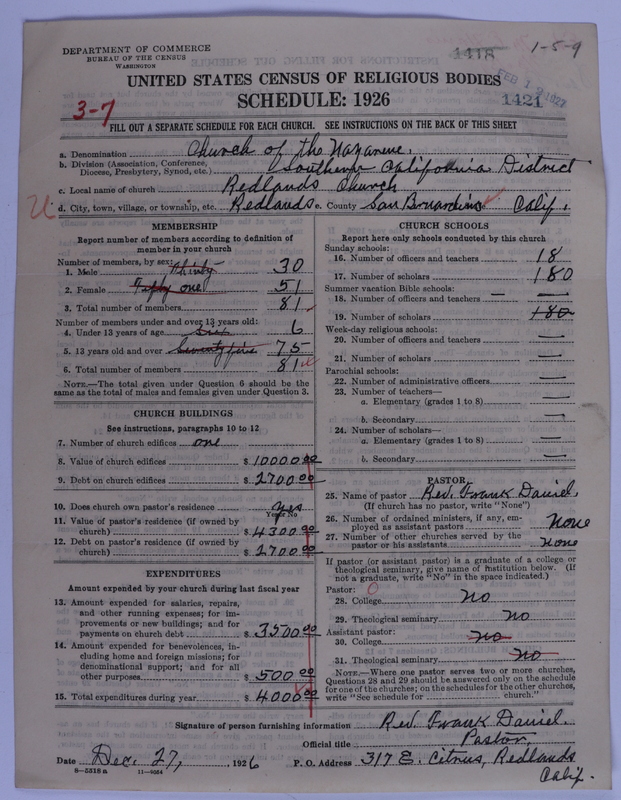 DEPARTMENT OF COMMERCE
BUREAU OF THE CENSUS
WASHINGTON
1418
1-5-9
FEB 12 1927
1421
UNITED STATES CENSUS OF RELIGIOUS BODIES
SCHEDULE: 1926
3-7
FILL OUT A SEPARATE SCHEDULE FOR EACH CHURCH. SEE INSTRUCTIONS ON THE BACK OF THIS SHEET
a. Denomination Church of the Nazarene.
b. Division (Association, Conference, Diocese, Presbytery, Synod, etc.) Southern California District
c. Local name of church Redlands Church
U d. City, town, village, or township, etc. Redlands e. County San Bernardino Calif.
MEMBERSHIP
Report number of members according to definition of
member in your church
Number of members, by sex:
1. Male Thirty 30
2. Female Fifty one 51
3. Total number of members 81
Number of members under and over 13 years old:
4. Under 13 years of age Six 6
5. 13 years old and over Seventy five 75
6. Total number of members 81
NOTE.—The total given under Question 6 should be the
same as the total of males and females given under Question 3.
CHURCH BUILDINGS
See instructions, paragraphs 10 to 12
7. Number of church edifices one
8. Value of church edifices $ 10000.00
9. Debt on church edifices $ 2700.00
10. Does church own pastor's residence yes
Yes or No
11. Value of pastor's residence (if owned by
church) $ 4300.00
12. Debt on pastor's residence (if owned by
church) $ 2700.00
EXPENDITURES
Amount expended by your church during last fiscal year
13. Amount expended for salaries, repairs,
and other running expenses; for im-
provements or new buildings; and for
payments on church debt $ 3500.00
14. Amount expended for benevolences, in-
cluding home and foreign missions; for
denominational support; and for all
other purposes $ 500.00
15. Total expenditures during year $ 4000.00
CHURCH SCHOOLS
Report here only schools conducted by this church
Sunday schools:
16. Number of officers and teachers 18
17. Number of scholars 180
Summer vacation Bible schools:
18. Number of officers and teachers — —
19. Number of scholars 180
Week-day religious schools:
20. Number of officers and teachers —
21. Number of scholars —
Parochial schools:
22. Number of administrative officers —
23. Number of teachers—
a. Elementary (grades 1 to 8) —
b. Secondary —
24. Number of scholars—
a. Elementary (grades 1 to 8) —
b. Secondary —
PASTOR
25. Name of pastor Rev. Frank Daniel.
(If church has no pastor, write "None")
26. Number of ordained ministers, if any, em-
ployed as assistant pastors none
27. Number of other churches served by the
pastor or his assistants none
If pastor (or assistant pastor) is a graduate of a college or
theological seminary, give name of institution below. (If
not a graduate, write "No" in the space indicated.)
Pastor: 0
28. College no
29. Theological seminary no
Assistant pastor:
30. College no
31. Theological seminary no
NOTE.—Where one pastor serves two or more churches,
Questions 28 and 29 should be answered only on the schedule
for one of the churches; on the schedules for the other churches,
write "See schedule for church."
Signature of person furnishing information Rev. Frank Daniel.
Official title Pastor,
Date Dec. 27, 1926 P. O. Address 317 E. Citrus, Redlands
Calif.
8-5518a 11-9054